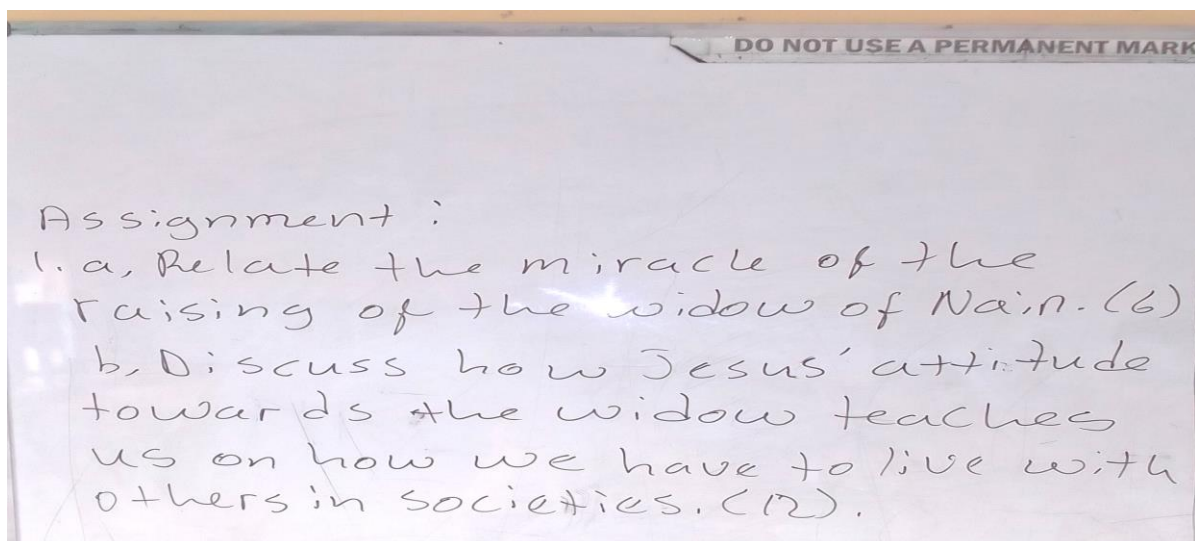 DO NOT USE A PERMANENT MARK
Assignment :
1. a, Relate the miracle of the
raising of the widow of Nain. (6)
b, Discuss how Jesus' attitude
towards the widow teaches
us on how we have to live with
others in societies. (12).